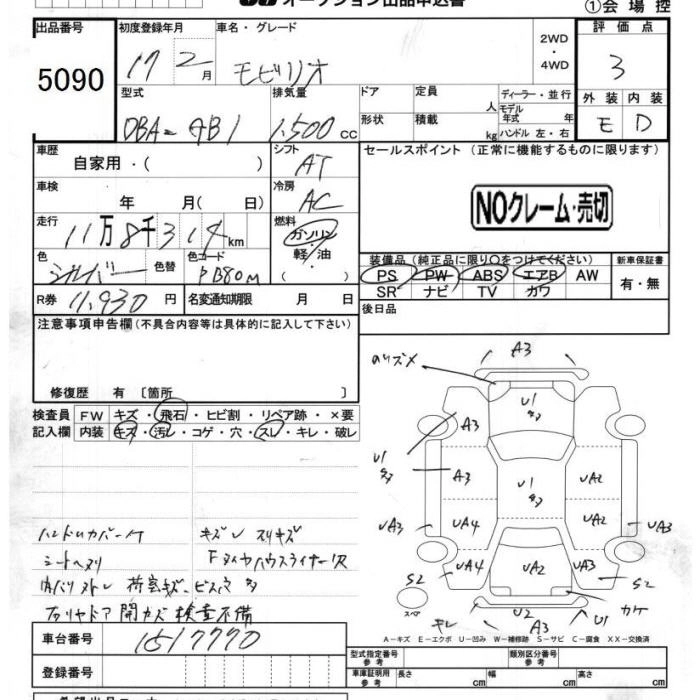 オークション出品申込書
①会場控
出品番号 初度登録年月 車名・グレード 2WD・4WD 評価点
5090 17 2月 モビリオ 3
型式 排気量 ドア 定員 人 ディーラー・並行 外装 内装
DBA-GB1 1,500CC 形状 積載 kg モデル年式 年 ハンドル 左・右 E D
車歴 シフト セールスポイント (正常に機能するものに限ります)
自家用・( ) AT
車検 冷房
年 月( 日) AC
NOクレーム・売切
走行 燃料
11万8千314km ガソリン・軽・油 ( )
色 色替 色コード 装備品(純正品に限り○をつけてください) 新車保証書
シルバー PB80M PS PW ABS エアB AW 有・無
SR ナビ TV カワ
R券 11,930円 名変通知期限 月 日 後日品
注意事項申告欄(不具合内容等は具体的に記入して下さい)
修復歴 有 〔箇所 〕
検査員 FW キズ・飛石・ヒビ割・リペア跡・×要
記入欄 内装 キズ・汚レ・コゲ・穴・スレ・キレ・破レ
A3
U1
A3
U1
A3
U1
UA2
UA3 UA4 UA2 UA3
UA4 UA2 UA3
S2 S2
スペア
キレ U2 A3 U1 カケ
ハンドルカバー
シートヘタリ
検査不備
A-キズ E-エクボ U-凹み W-補修跡 S-サビ C-腐食 XX-交換済
車台番号 1517770
登録番号
型式指定番号 参考 類別区分番号 参考
車庫証明用 参考 長さ cm 幅 cm 高さ cm